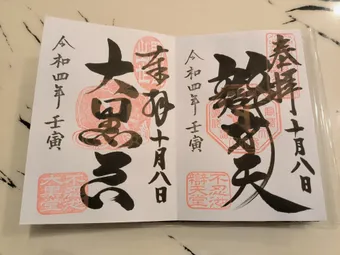 奉拝
十月八日
辨才天
令和四年 壬寅
奉拝
十月八日
大黒天
令和四年 壬寅
大黒堂